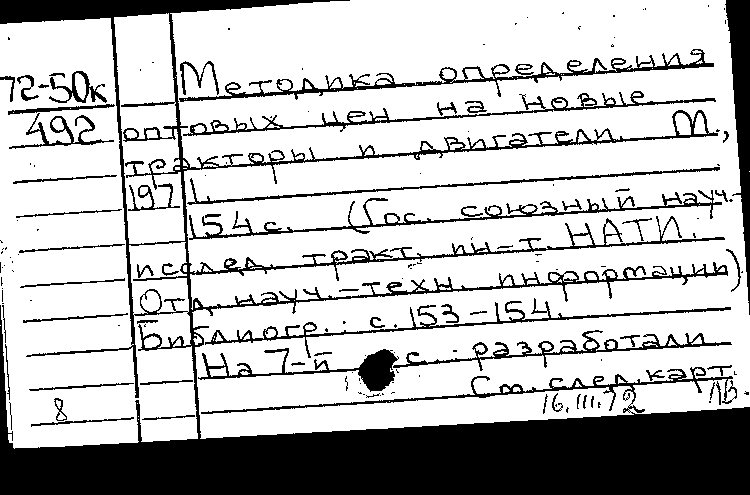 72-50к Методика определения
492 оптовых цен на новые
тракторы и двигатели. М.,
1971.
154 с. (Гос. союзный науч.-
исслед. тракт. ин-т. НАТИ.
Отд. науч.-техн. информации)
Библиогр.: с. 153-154.
На 7-й с.: разработали
См. след. карт.
8 16.III.72 ЛВ.